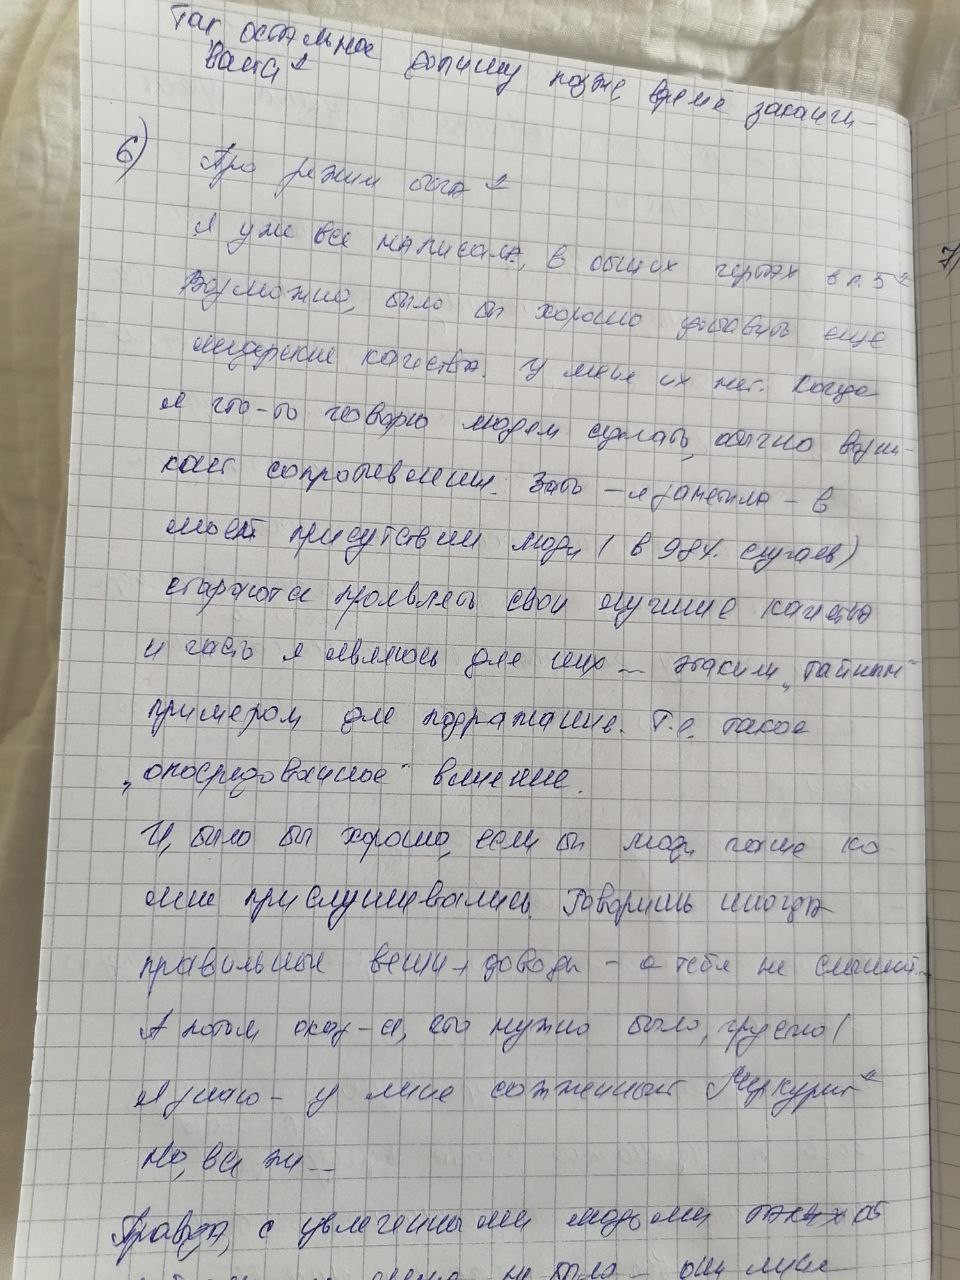 Так, остальное допишу позже, время заканчи-
вается
6) Про режим бога
Я уже все написала, в общих чертах в п. 5
Возможно, было бы хорошо добавить еще
лидерские качества. У меня их нет. Когда
я что-то говорю людям сделать, обычно возни-
кает сопротивление. Зато - я заметила - в
моем присутствии люди (в 98% случаев)
стараются проявлять свои лучшие качества
и часто я являюсь для них - этаким "тайным"
примером для подражания. Т.е. такое
"опосредованное" влияние.
И, было бы хорошо, если бы люди чаще ко
мне прислушивались. Говоришь иногда
правильные вещи, доводы - а тебя не слышат.
А потом оказ-ся, что нужно было, грустно(
Я знаю - у меня сожженный Меркурий
Но, все же...
Правда, с увлеченными людьми такого
не было - они меня
7)